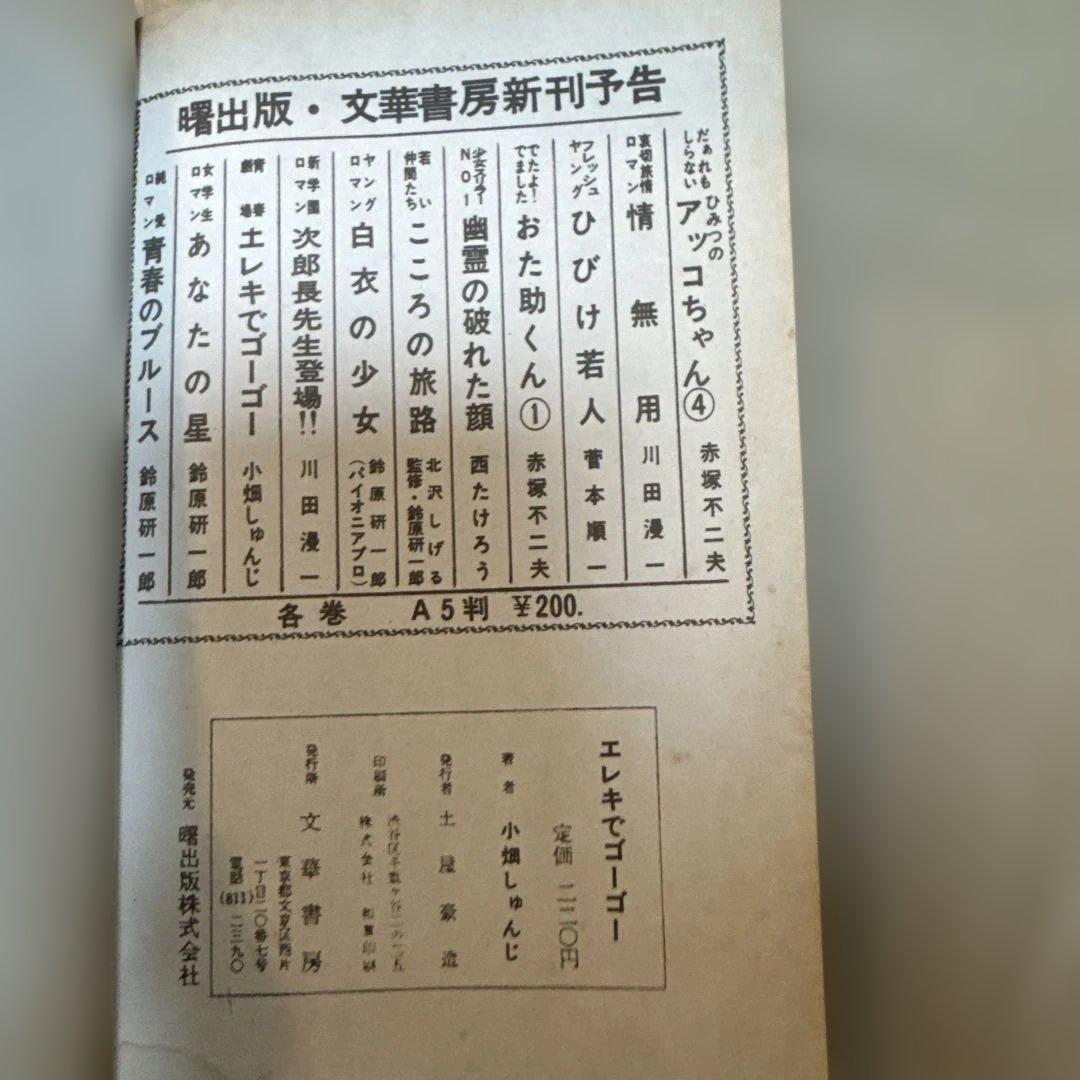 曙出版・文華書房新刊予告
だぁれもしらない ひみつの アッコちゃん④ 赤塚不二夫
哀切旅情ロマン 情無用 川田漫一
フレッシュヤング ひびけ若人 菅本順一
でたよ!でました おた助くん① 赤塚不二夫
少女スリラーNO1 幽霊の破れた顔 西たけろう
若い仲間たち こころの旅路 北沢しげる 監修・鈴原研一郎
ヤングロマン 白衣の少女 鈴原研一郎 (パイオニアプロ)
新学園ロマン 次郎長先生登場!! 川田漫一
青春劇場 エレキでゴーゴー 小畑しゅんじ
女学生ロマン あなたの星 鈴原研一郎
純愛ロマン 青春のブルース 鈴原研一郎
各巻 A5判 ¥200.
エレキでゴーゴー
定価 二二〇円
著者 小畑しゅんじ
発行者 土屋豪造
印刷所 渋谷区千駄ヶ谷二の一五
株式会社 印刷
発行所 文華書房
東京都文京区西片
一丁目二〇番七号
電話(811)二二三九〇
発売元 曙出版株式会社